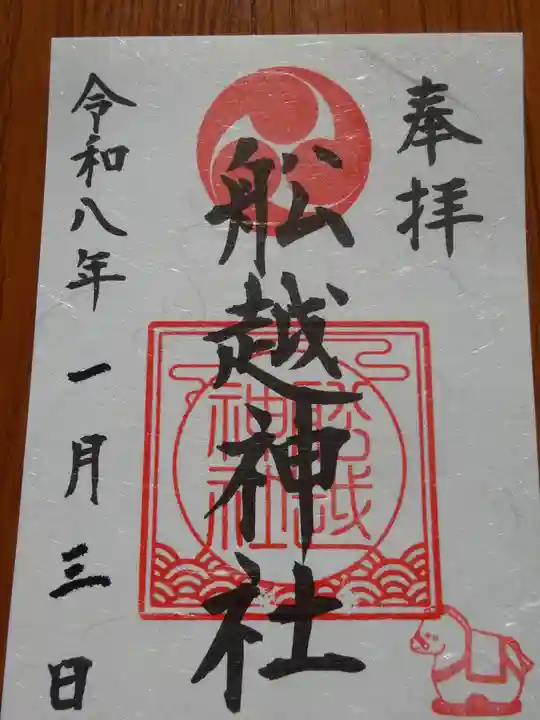 奉拝
舩越神社
舩越
神社
令和八年一月三日